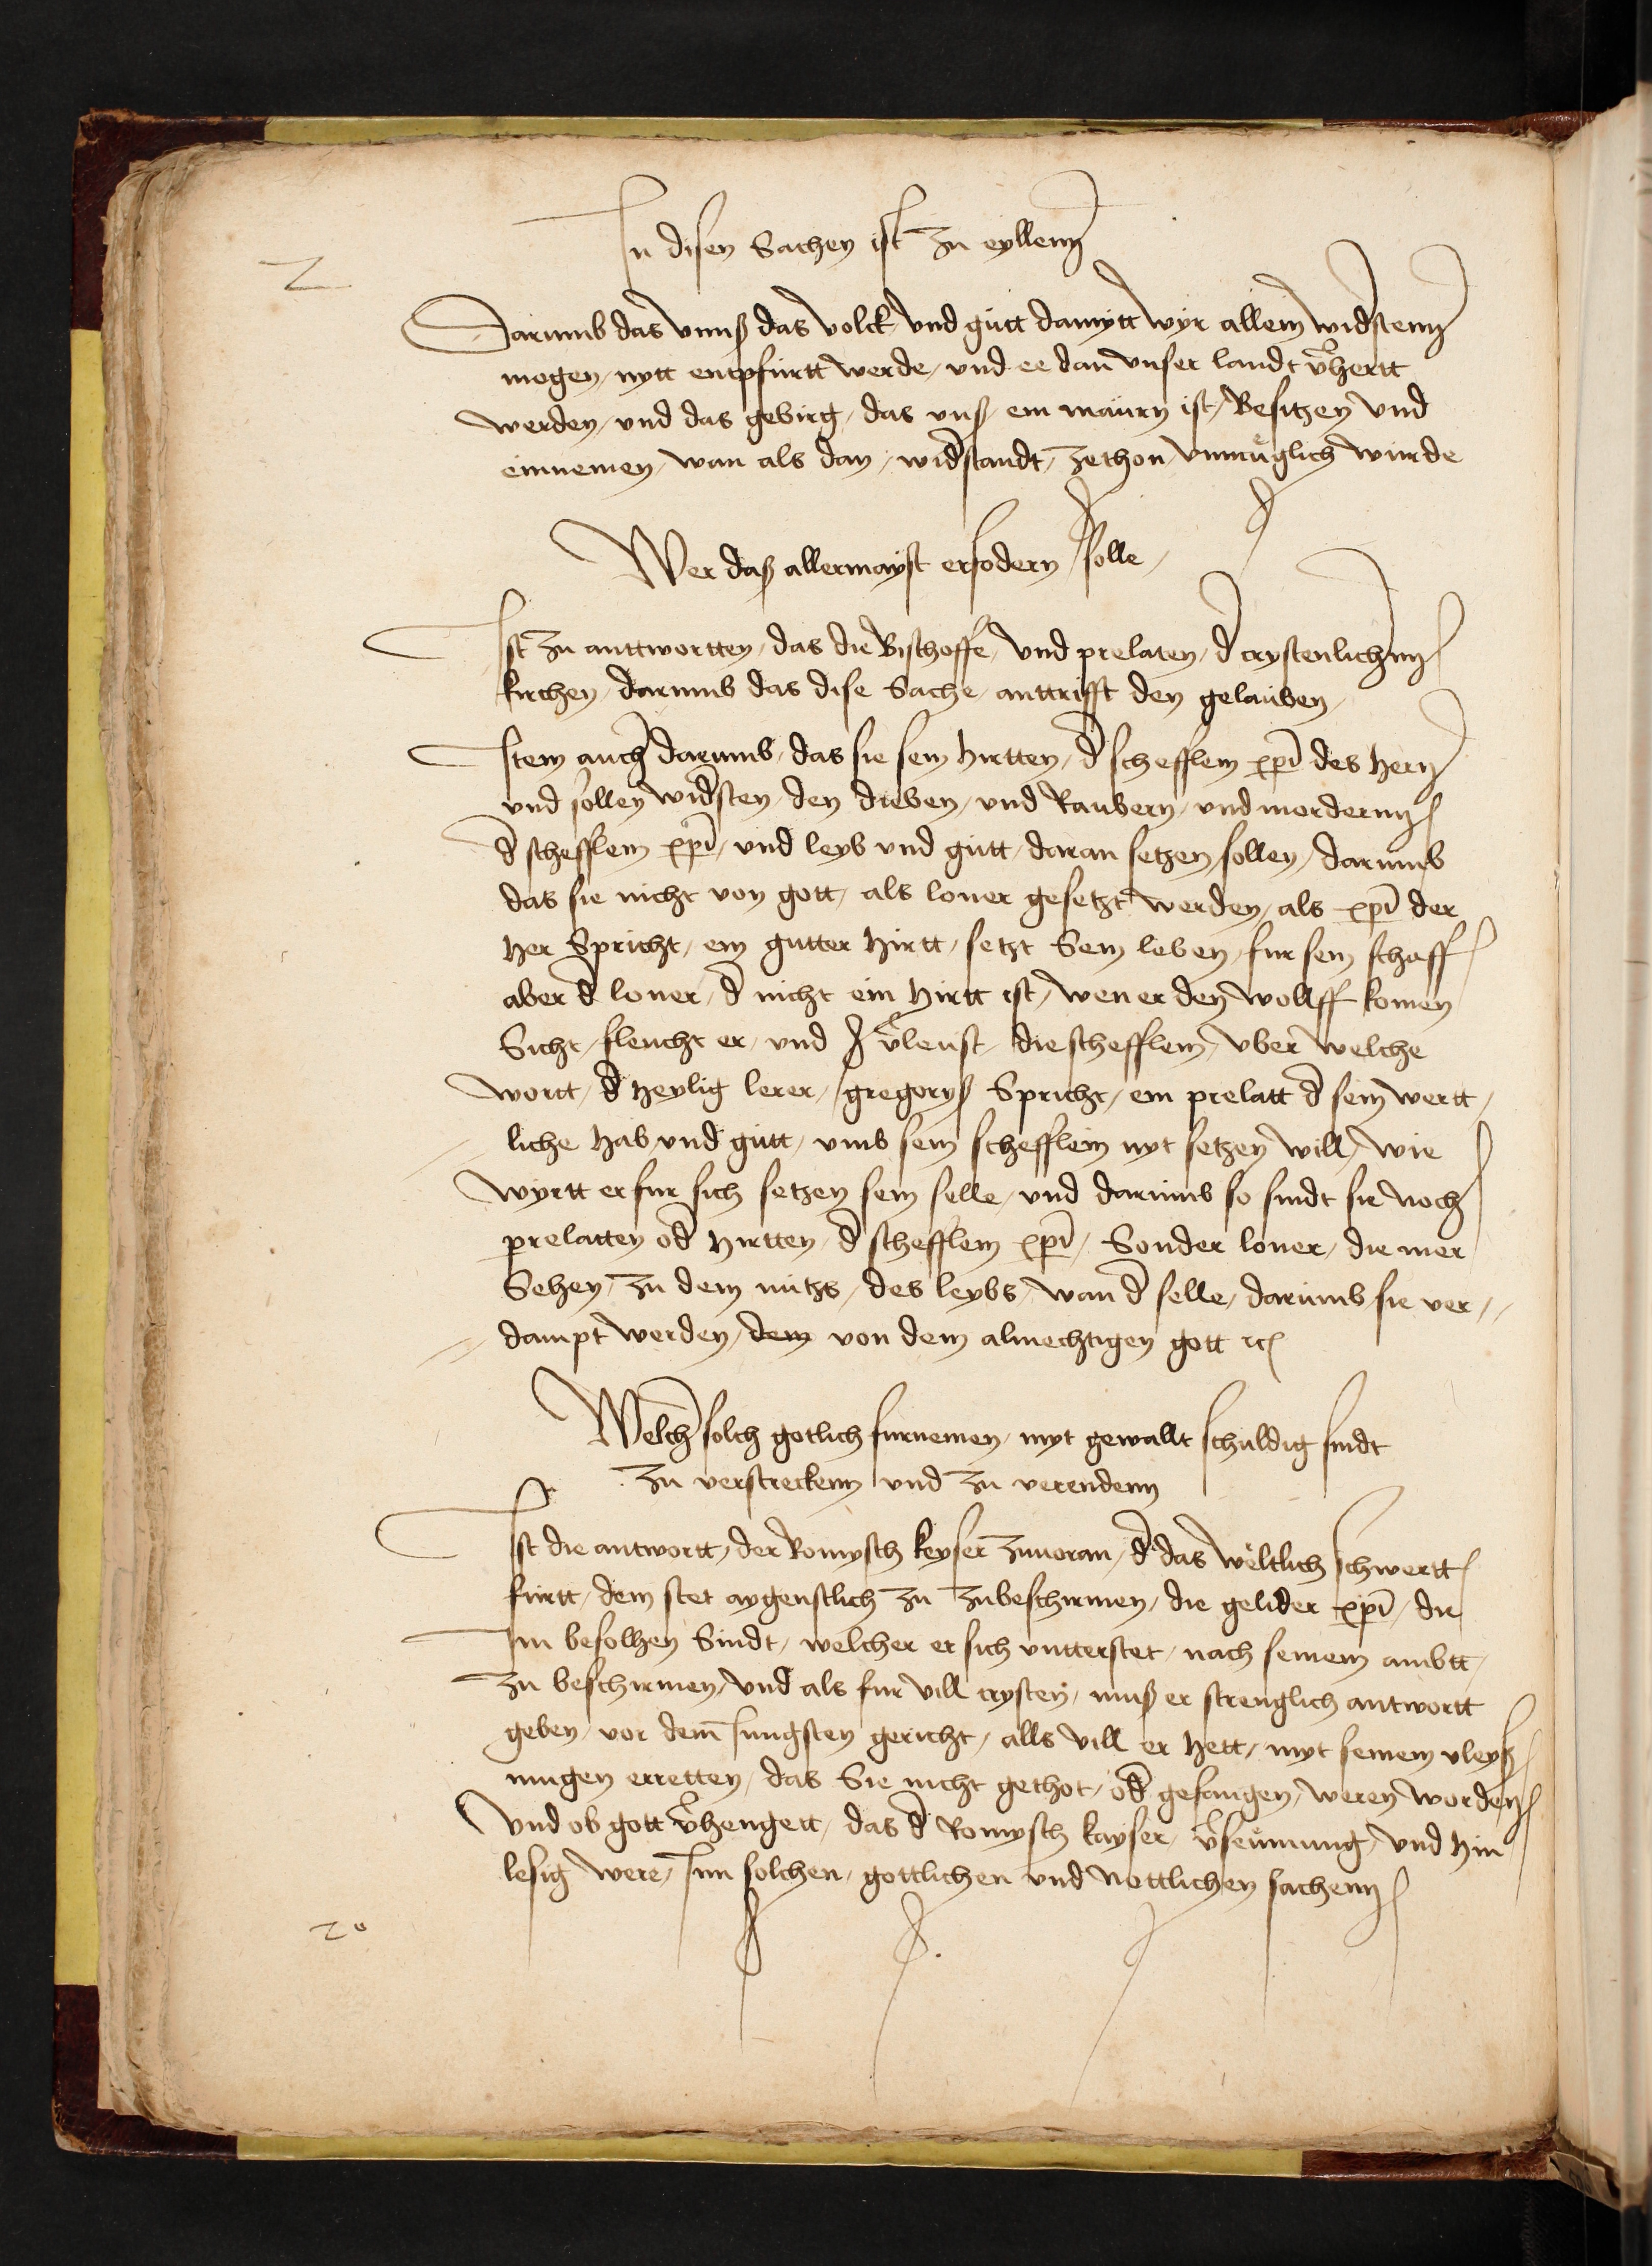 In disen Sachen ist zu eyllenn
2
Darumb das vnnß das volck vnd gütt damytt wyr allein widstenn
mogen / nytt entpfürtt werde / vnd ee dan vnser landt v̄hertt
werden / vnd das gebirg / das vnß ein maürn ist / Besitzen vnd
einnemen / wan als dan / widstandt / zethon / vnmüglich würde
Wer daß allermayst erfodern solle /
Ist zu anttwortten / das die Bischoffe / vnd prelaten / d crystenlichenn
kirchen / darumb das dise Sache / anttrifft den gelauben /
Item auch darumb / das sie sein Hirtten / d schefflein xpi des Hern
vnd sollen widsten / den dieben / vnd Raubern / vnd mordernn
d schefflein xpi / vnd leyb vnd gütt / daran setzen sollen / darumb
das sie nicht von gott / als loner gesetzt werden / als xpi der
Her Spricht / ein gutter Hirtt / setzt Sein leben / fur sein schaff
aber d loner / d nicht ein Hirtt ist / wen er den wolff komen
Sicht / fleucht er / vnd v̄leust / die schefflein / vber welche
wortt / d Heylig lerer / gregoryß Spricht / ein prelatt d sein wertt /
liche Hab vnd gütt / vmb sein schefflein nyt setzen will / wie
wyrtt er fur sich setzen sein selle / vnd darumb so sindt sie noch
prelatten od Hirtten / d schefflein xpi / Sonder loner / die mer
Sehen / zu dem nützs / des leybs / wan d selle / darumb sie ver //
dampt werden / dem von dem almechtigen gott rc
Welch solch gotlich furnemen / myt gewallt schuldig sindt
zu verstreckenn vnd zu verendenn
Ist die antwortt / der Romysch keyser zuuoran / d das weltlich schwertt
fürtt / dem stet aygenstlich zu zubeschirmen / die gelider xpi / die
Im befolhen Sindt / welcher er sich vntterstet / nach seinem ambtt /
zu beschirmen / vnd als fur vill crysten / muß er strenglich antwortt
geben / vor dem Jungsten gericht / alls vill er Hett / myt seinem vleyß
mugen erretten / das Sie nicht gethot / od gefangen / weren worden
Vnd ob gott v̄hengett / das d Romysch kayser / v̄seumung / vnd Hin
lesig were / Inn solchen / gottlichen vnd nottlichen sachenn
20